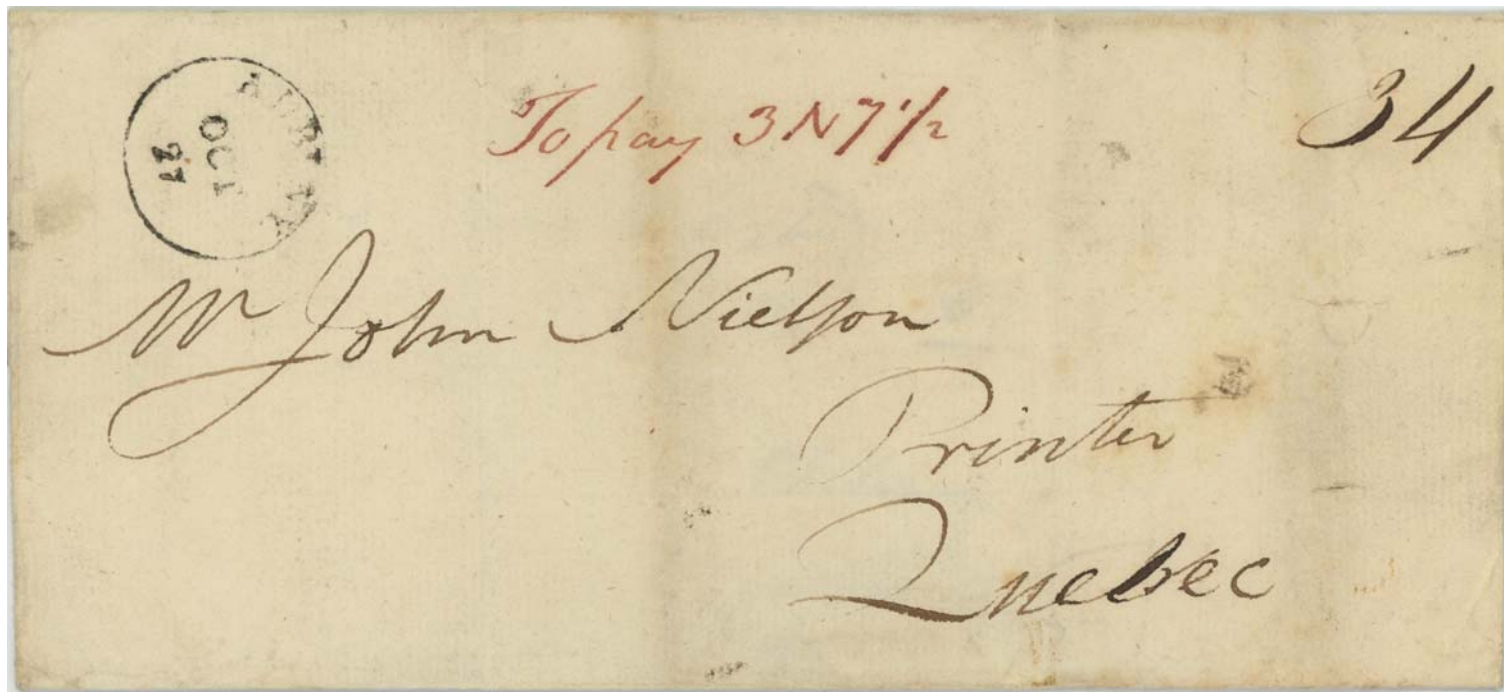 OCT
27
To pay 3N7 1/2
34
Mr John Nielson
Printer
Quebec